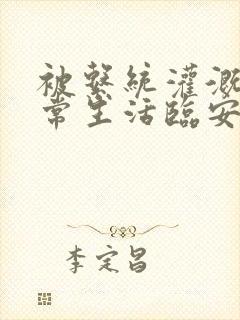 被繫統灌溉
常生活臨安
李定昌